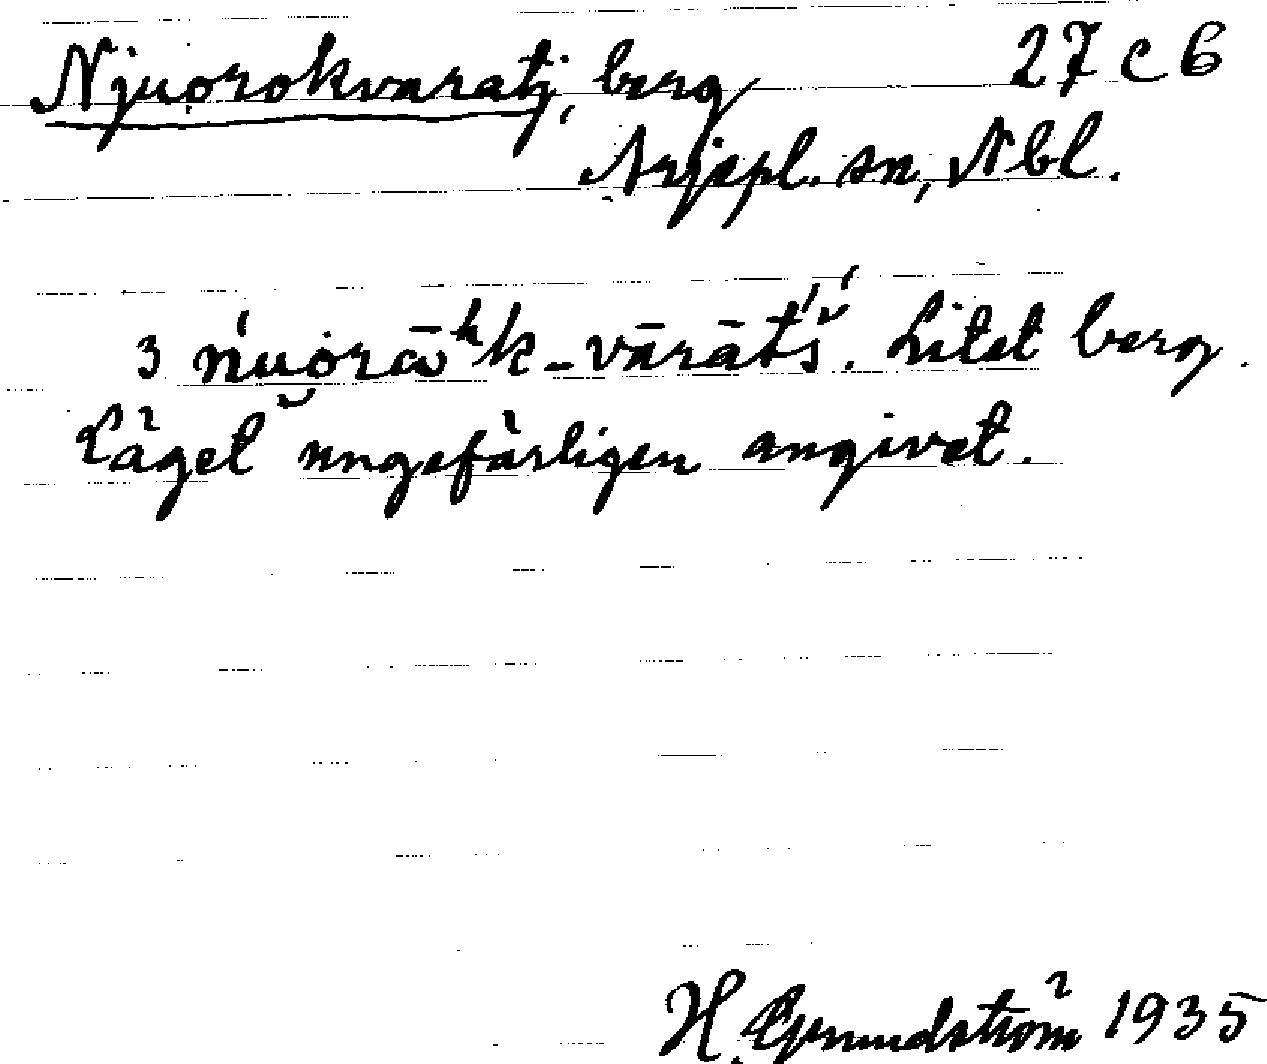 Njuorokvaratj, berg 27 C 6
Arjepl. sn, Nbl.
3 ńu̯ȯrāʰk-vārāt́š́. Litet berg.
Läget ungefärligen angivet.
H. Grundström 1935